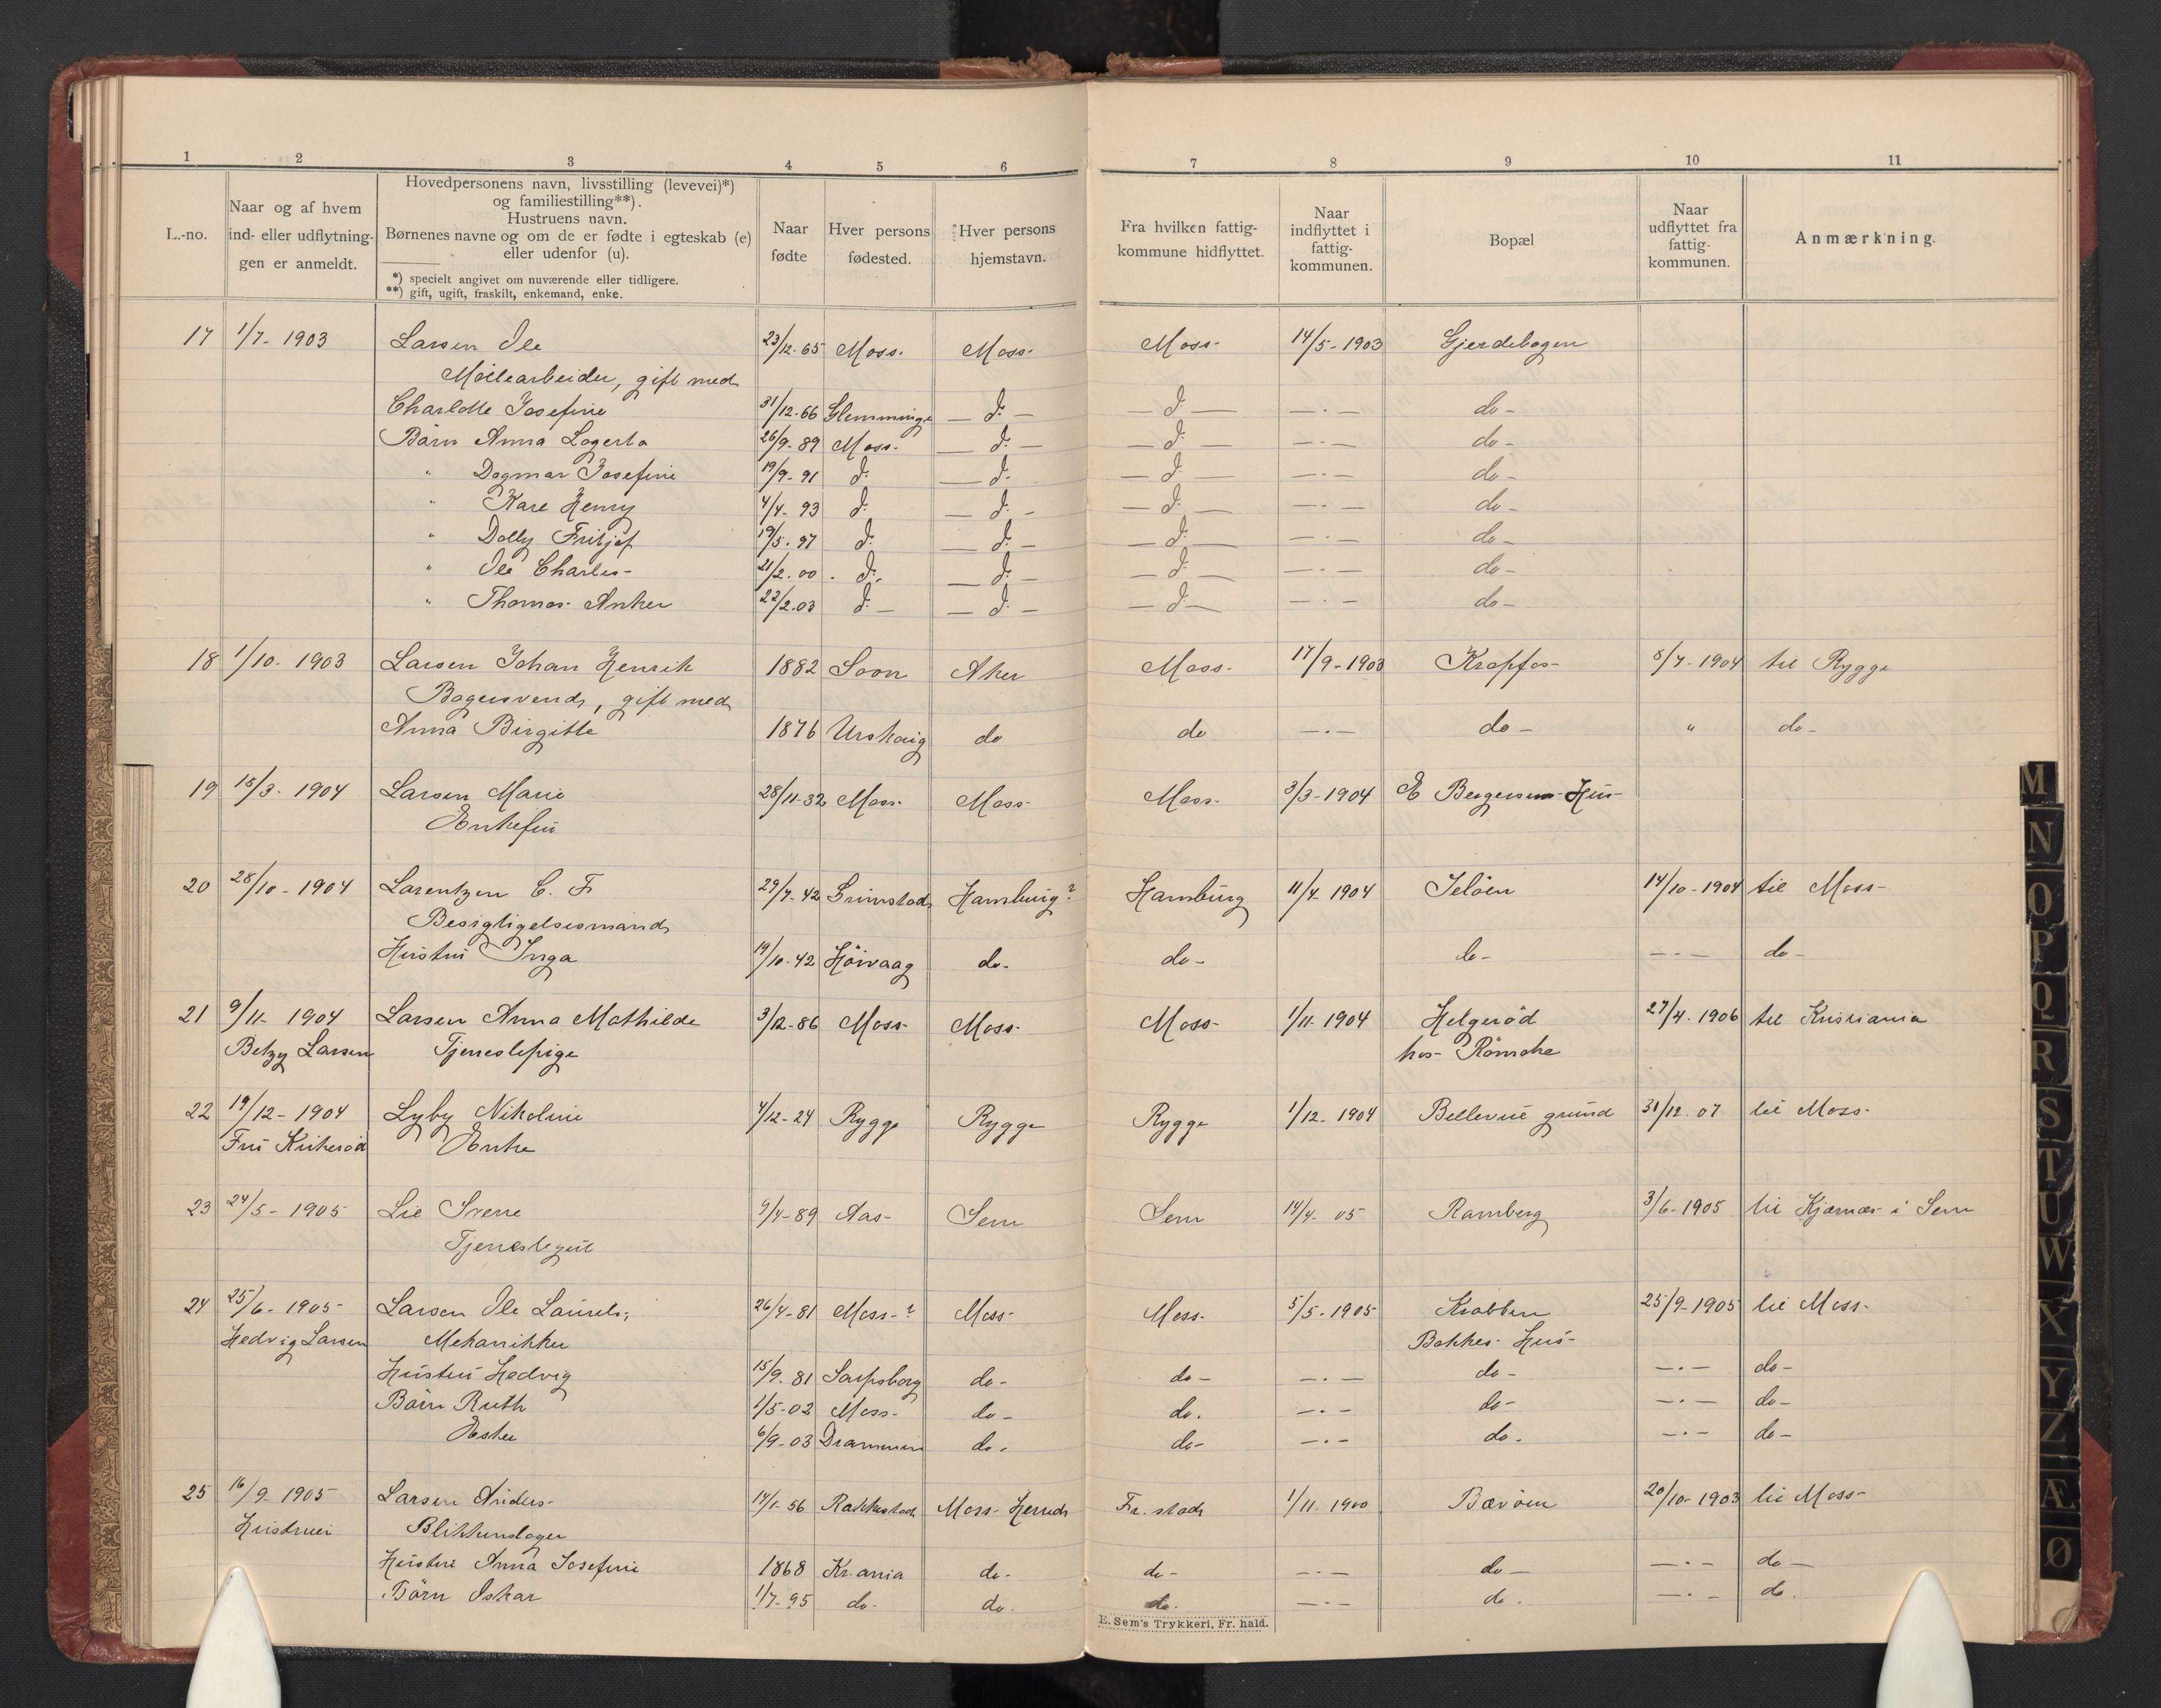 1 2 3 4 5 6 7 8 9 10 11
L.-no.
Naar og af hvem
ind- eller udflytnin-
gen er anmeldt.
Hovedpersonens navn, livsstilling (levevei)*)
og familiestilling**).
Hustruens navn.
Børnenes navne og om de er fødte i egteskab (e)
eller udenfor (u).
*) specielt angivet om nuværende eller tidligere.
**) gift, ugift, fraskilt, enkemand, enke.
Naar
fødte
Hver persons
fødested.
Hver persons
hjemstavn.
Fra hvilken fattig-
kommune hidflyttet.
Naar
indflyttet i
fattig-
kommunen.
Bopæl
Naar
udflyttet fra
fattig-
kommunen.
Anmærkning.
17 1/7- 1903 Larsen Ole 23/12-65 Moss- Moss- Moss- 14/5-1903 Gjerdebogen
Møllearbeider, gift med
Charlotte Josefine 31/12-66 Glemminge — d: — — d: — — · — do-
Børn Anna Lagerta 26/9-89 Moss- — d: — — d: — — · — do-
" Dagmar Josefine 19/9-91 d: — d: — d: — — · — do-
" Kare Henry 4/4-93 d: — d: - — d: — — · — do-
" Dolly Fritjof 19/5-97 d: — d: — — d: — — · — do-
" Ole Charles- 21/2-00 d: — d: — — d: — — · — do-
" Thomas Anker 22/2.03 d: — — d: — — d: — — · — do-
18 1/10- 1903 Larsen Johan Henrik 1882 Soon Aker Moss- 17/9-1903 Krapfos- 8/7-1904 til Rygge
Bagersvend, gift med
Anna Birgitte 1876 Urskoug do do — · — do- " do-
19 15/3- 1904 Larsen Marie 28/11-32 Moss- Moss- Moss- 3/3-1904 E Bergersens Hus-
Enkefru
20 28/10-1904 Larentzen C. F. 29/7-42 Grimstad Hamburg? Hamburg 11/4-1904 Jeløen 14/10-1904 til Moss-
Besigtigelsesmand
Hustru Inga 19/10-42 Høivaag do- do- do- — · — do-
21 9/11- 1904 Larsen Anna Mathilde 3/12-86 Moss- Moss- Moss- 1/11-1904 Helgerød 27/4-1906 til Kristiania
Betzy Larsen Tjenestepige hos- Rømcke
22 19/12-1904 Lyby Nikoline 4/12-24 Rygge Rygge Rygge 1/12-1904 Bellevue grund 31/12.07 til Moss-
Fru Kirkerød Enke
23 24/5-1905 Lie Sverre 9/4-89 Aas- Sem Sem 14/4-05 Ramberg 3/6-1905 til Kjærnæs i Sem
Tjenestegut
24 25/6-1905 Larsen Ole Laurits, 26/4-81 Moss-? Moss- Moss- 5/5-1905 Krabben 25/9-1905 til Moss-
Hedvig Larsen Mekanikker Bakkes- Hus-
Hustru Hedvig 15/9-81 Sarpsborg do- do- — · — do- — · — do-
Børn Ruth 1/5-02 Moss- do- do. — · — do- — · — do-
Ester 6/9-03 Drammen do- do- — · — do- — · — do-
25 16/9-1905 Larsen Anders- 14/1-56 Rakkestad Moss- Herred Fr. stad 1/11-1900 Bævøen 20/10-1903 til Moss-
Hustruei Blikkenslager
Hustru Anna Josefine 1868 Kr.ania do- do- — · — do- — · — do-
Børn Oskar 1/7-95 do- do. do. — · — do. — · — do.
E. Sem's Trykkeri, Fr. hald.
M
N
O
P
Q
R
S
T
U
W
X
Y
Z
Æ
Ø